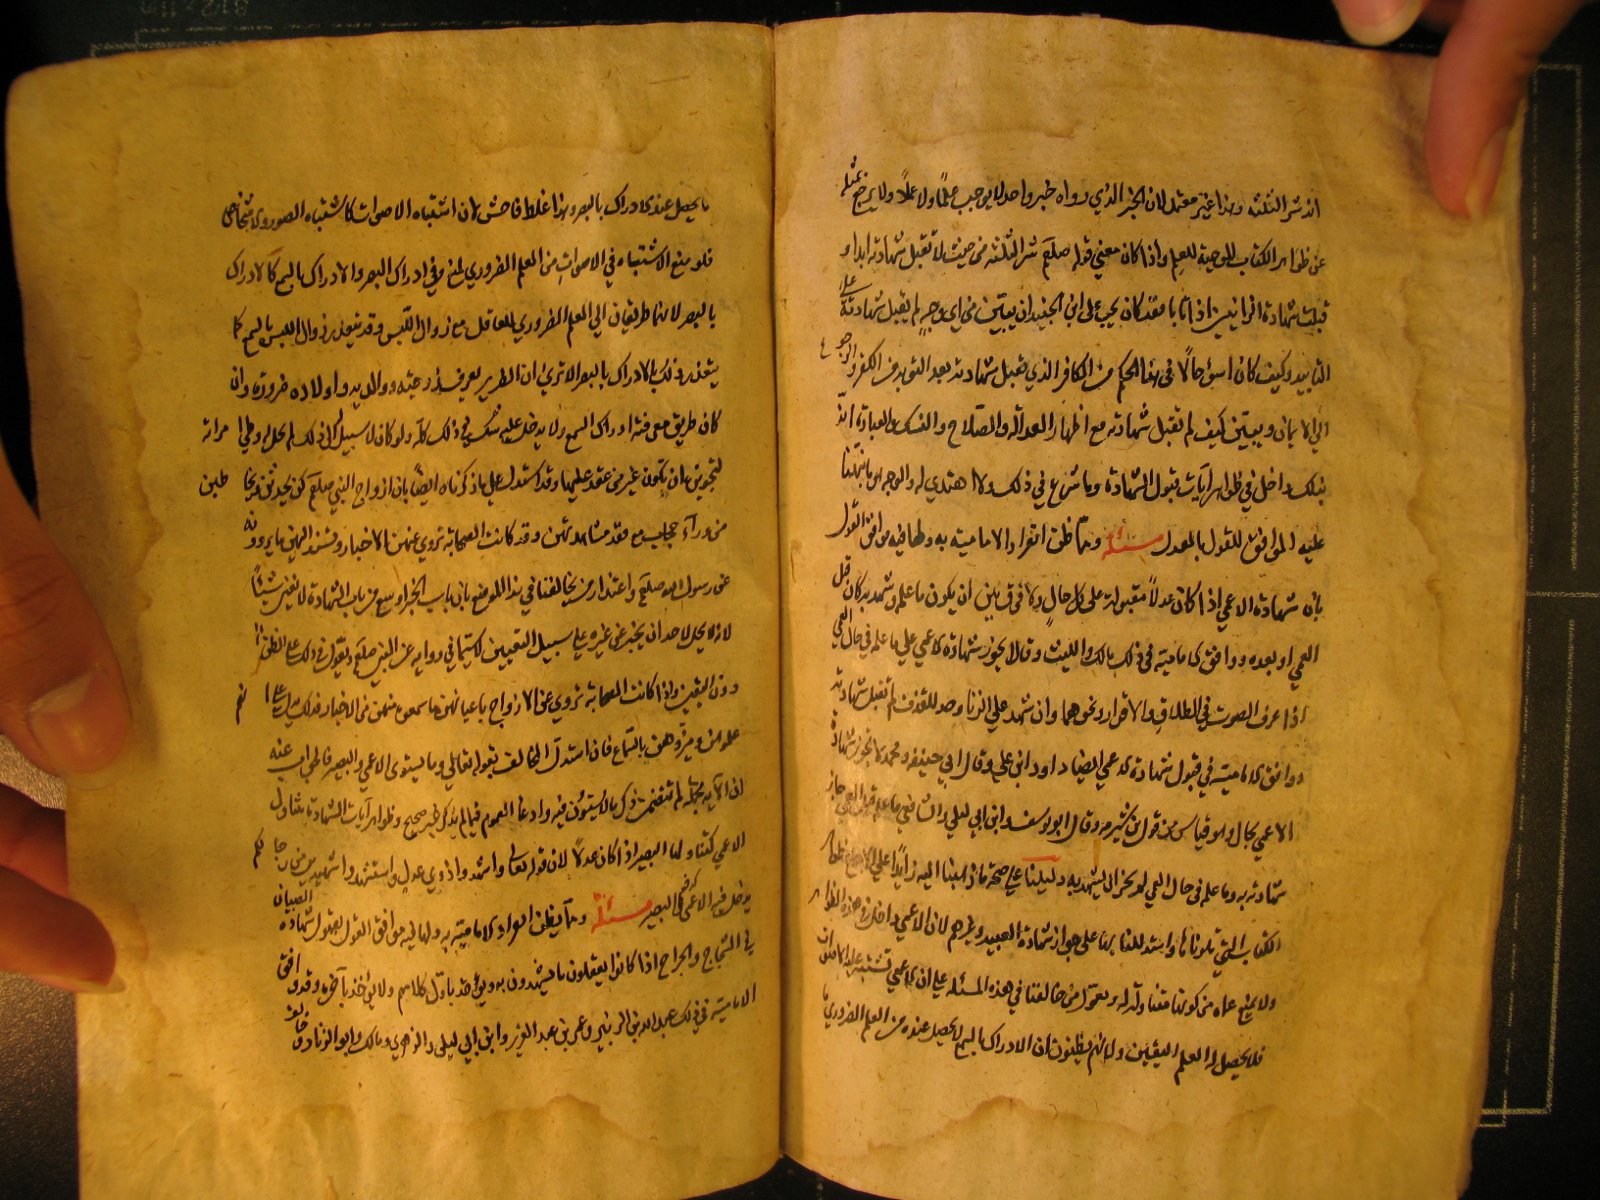 انه شر الثلثة وهذا غير معتمد لان الخبر الذي رواه خبر واحد لا يوجب علمًا ولا عملًا ولا يرجع بمثله
عن ظواهر الكتاب الموجبة للعلم واذا كان معني قوله صلعم شر الثلثة من حيث لا تقبل شهادته ابدا و
قبلت شهادة الزانيين اذا تابا فقد كان يجب علي ابن الجنيد ان يبين من اي وجه لم يقبل شهادته علي
التابيد وكيف كان اسوء حالًا في هذا الحكم من الكافر الذي تقبل شهادته بعد التوبة من الكفر والرجوع
الي الايمان ويبين كيف لم تقبل شهادته مع اظهار العدالة والصلاح والنسك والعبادة انه
بذلك داخل في ظواهر آيات قبول الشهادة وما شرع في ذلك ولا اهتدي له والوجه هو ما نبهنا
عليه الموافق للقول بالعدل مسئلة ومما ظن انفراد الامامية به ولها فيه موافق القول
بان شهادة الاعمي اذا كان عدلًا مقبولة علي كل حال ولا فرق بين ان يكون ما علمه وشهد به كان قبل
العمي او بعده ووافق الامامية في ذلك مالك والليث وقالا يجوز شهادة الاعمي علي ما علمه في حال العمي
اذا عرف الصوت في الطلاق والاقرار ونحوهما وان شهد علي الزنا وحد للقذف لم تقبل شهادته
ووافق الامامية في قبول شهادة الاعمي ايضا داود ابن علي وقال ابي حنيفة ومحمد لا تجوز شهادة
الاعمي بحال وهو قياس من قول ابن شبرمة وقال ابو يوسف وابن ابي ليلي والشافعي ما علمه قبل العمي جايز
شهادته به وما علمه في حال العمي لم يجز ان يشهد به دليلنا علي صحة ما ذهبنا اليه زايدًا علي الاجماع ظواهر
الكتاب التي تلوناها واستدللنا بها علي جواز شهادة العبيد وغيرهم لان الاعمي داخل في هذه الظواهر
ولا يمنع عماه من كونه متناولًا له ومعول من خالفنا في هذه المسئلة علي ان الاعمي تشتبه عليه الاصوات
فلا يحصل له العلم اليقين ولانهم يظنون ان الادراك بالسمع لا يحصل عنده من العلم الضروري
ما يحصل عند الادراك بالبصر وهذا غلط فاحش لان اشتباه الاصوات كاشتباه الصور والاشخاص
فلو منع الاشتباه في الاصوات من العلم الضروري لمنع في ادراك البصر والادراك بالسمع كالادراك
بالبصر لانهما طريقان الي العلم الضروري للعاقل مع زوال اللبس وقد يتعذر زوال اللبس بالسمع كما
يتعذر ذلك بالادراك بالبصر الا تري ان الضرير يعرف زوجته ووالديه واولاده ضرورة وان
كان طريق معرفته ادراك السمع ولا يدخل عليه شك في ذلك كله ولو كان لا سبيل له الي ذلك لم يحل له وطي امراته
لتجويزه ان تكون غير من عقد عليها وقد استدل علي ما ذكرناه ايضًا بان ازواج النبي صلعم كن يحدثن ويخاطبن
من ورآء حجاب مع فقد مشاهدتهن وقد كانت الصحابة تروي عنهن الاخبار وتسند اليهن ما يروونه
عن رسول الله صلعم واعتذار من يخالفنا في هذا الموضع بان باب الخبر اوسع من باب الشهادة لا يغني شيئًا
لانه لا يحل لاحد ان يخبر عن غيره علي سبيل التعيين لاسيما في رواية عن النبي صلعم ويعول في ذلك علي الظن
دون اليقين واذا كانت الصحابة تروي عن الازواج باعيانهن ما سمعوه منهن من الاخبار فدل علي انهم
علموهن وميزوهن بالسماع فان استدل المخالف بقوله تعالي وما يستوي الاعمي والبصير فالجواب عنه
ان الآية مجملة لم تتضمن ذكر ما لا يستوون فيه وادعاء العموم فيما لم يذكر غير صحيح وظواهر آيات الشهادة تتناول
الاعمي كتناولها البصير اذا كان عدلًا لان قوله تعالي واشهدوا ذوي عدل واستشهدوا شهيدين من رجالكم
يدخل فيه الاعمي كدخول البصير مسئلة ومما يظن انفراد الامامية به ولها فيه موافق القول بقبول شهادة الصبيان
في الشجاج والجراح اذا كانوا يعقلون ما يشهدون به ويؤخذ باول كلامهم ولا يؤخذ بآخره وقد وافق
الامامية في ذلك عبد الله بن الزبير وعمر بن عبد العزيز وابن ابي ليلي والزهري ومالك وابو الزناد وخالف